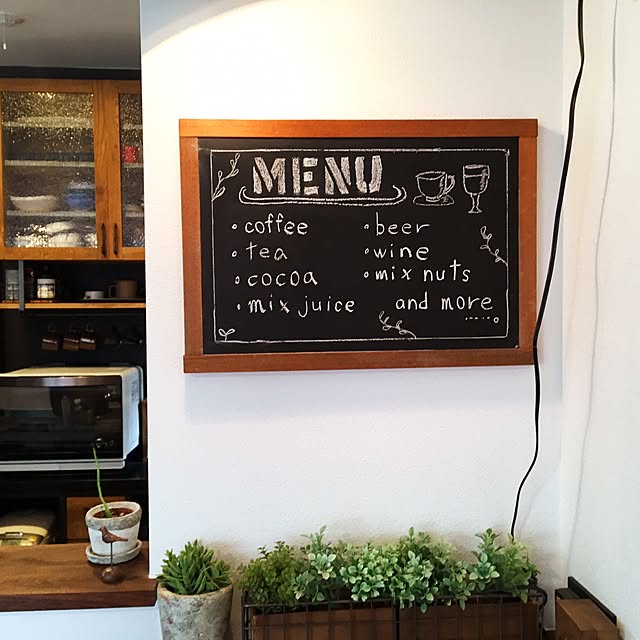 MENU
• coffee
• tea
• cocoa
• mix juice
• beer
• wine
• mix nuts
and more